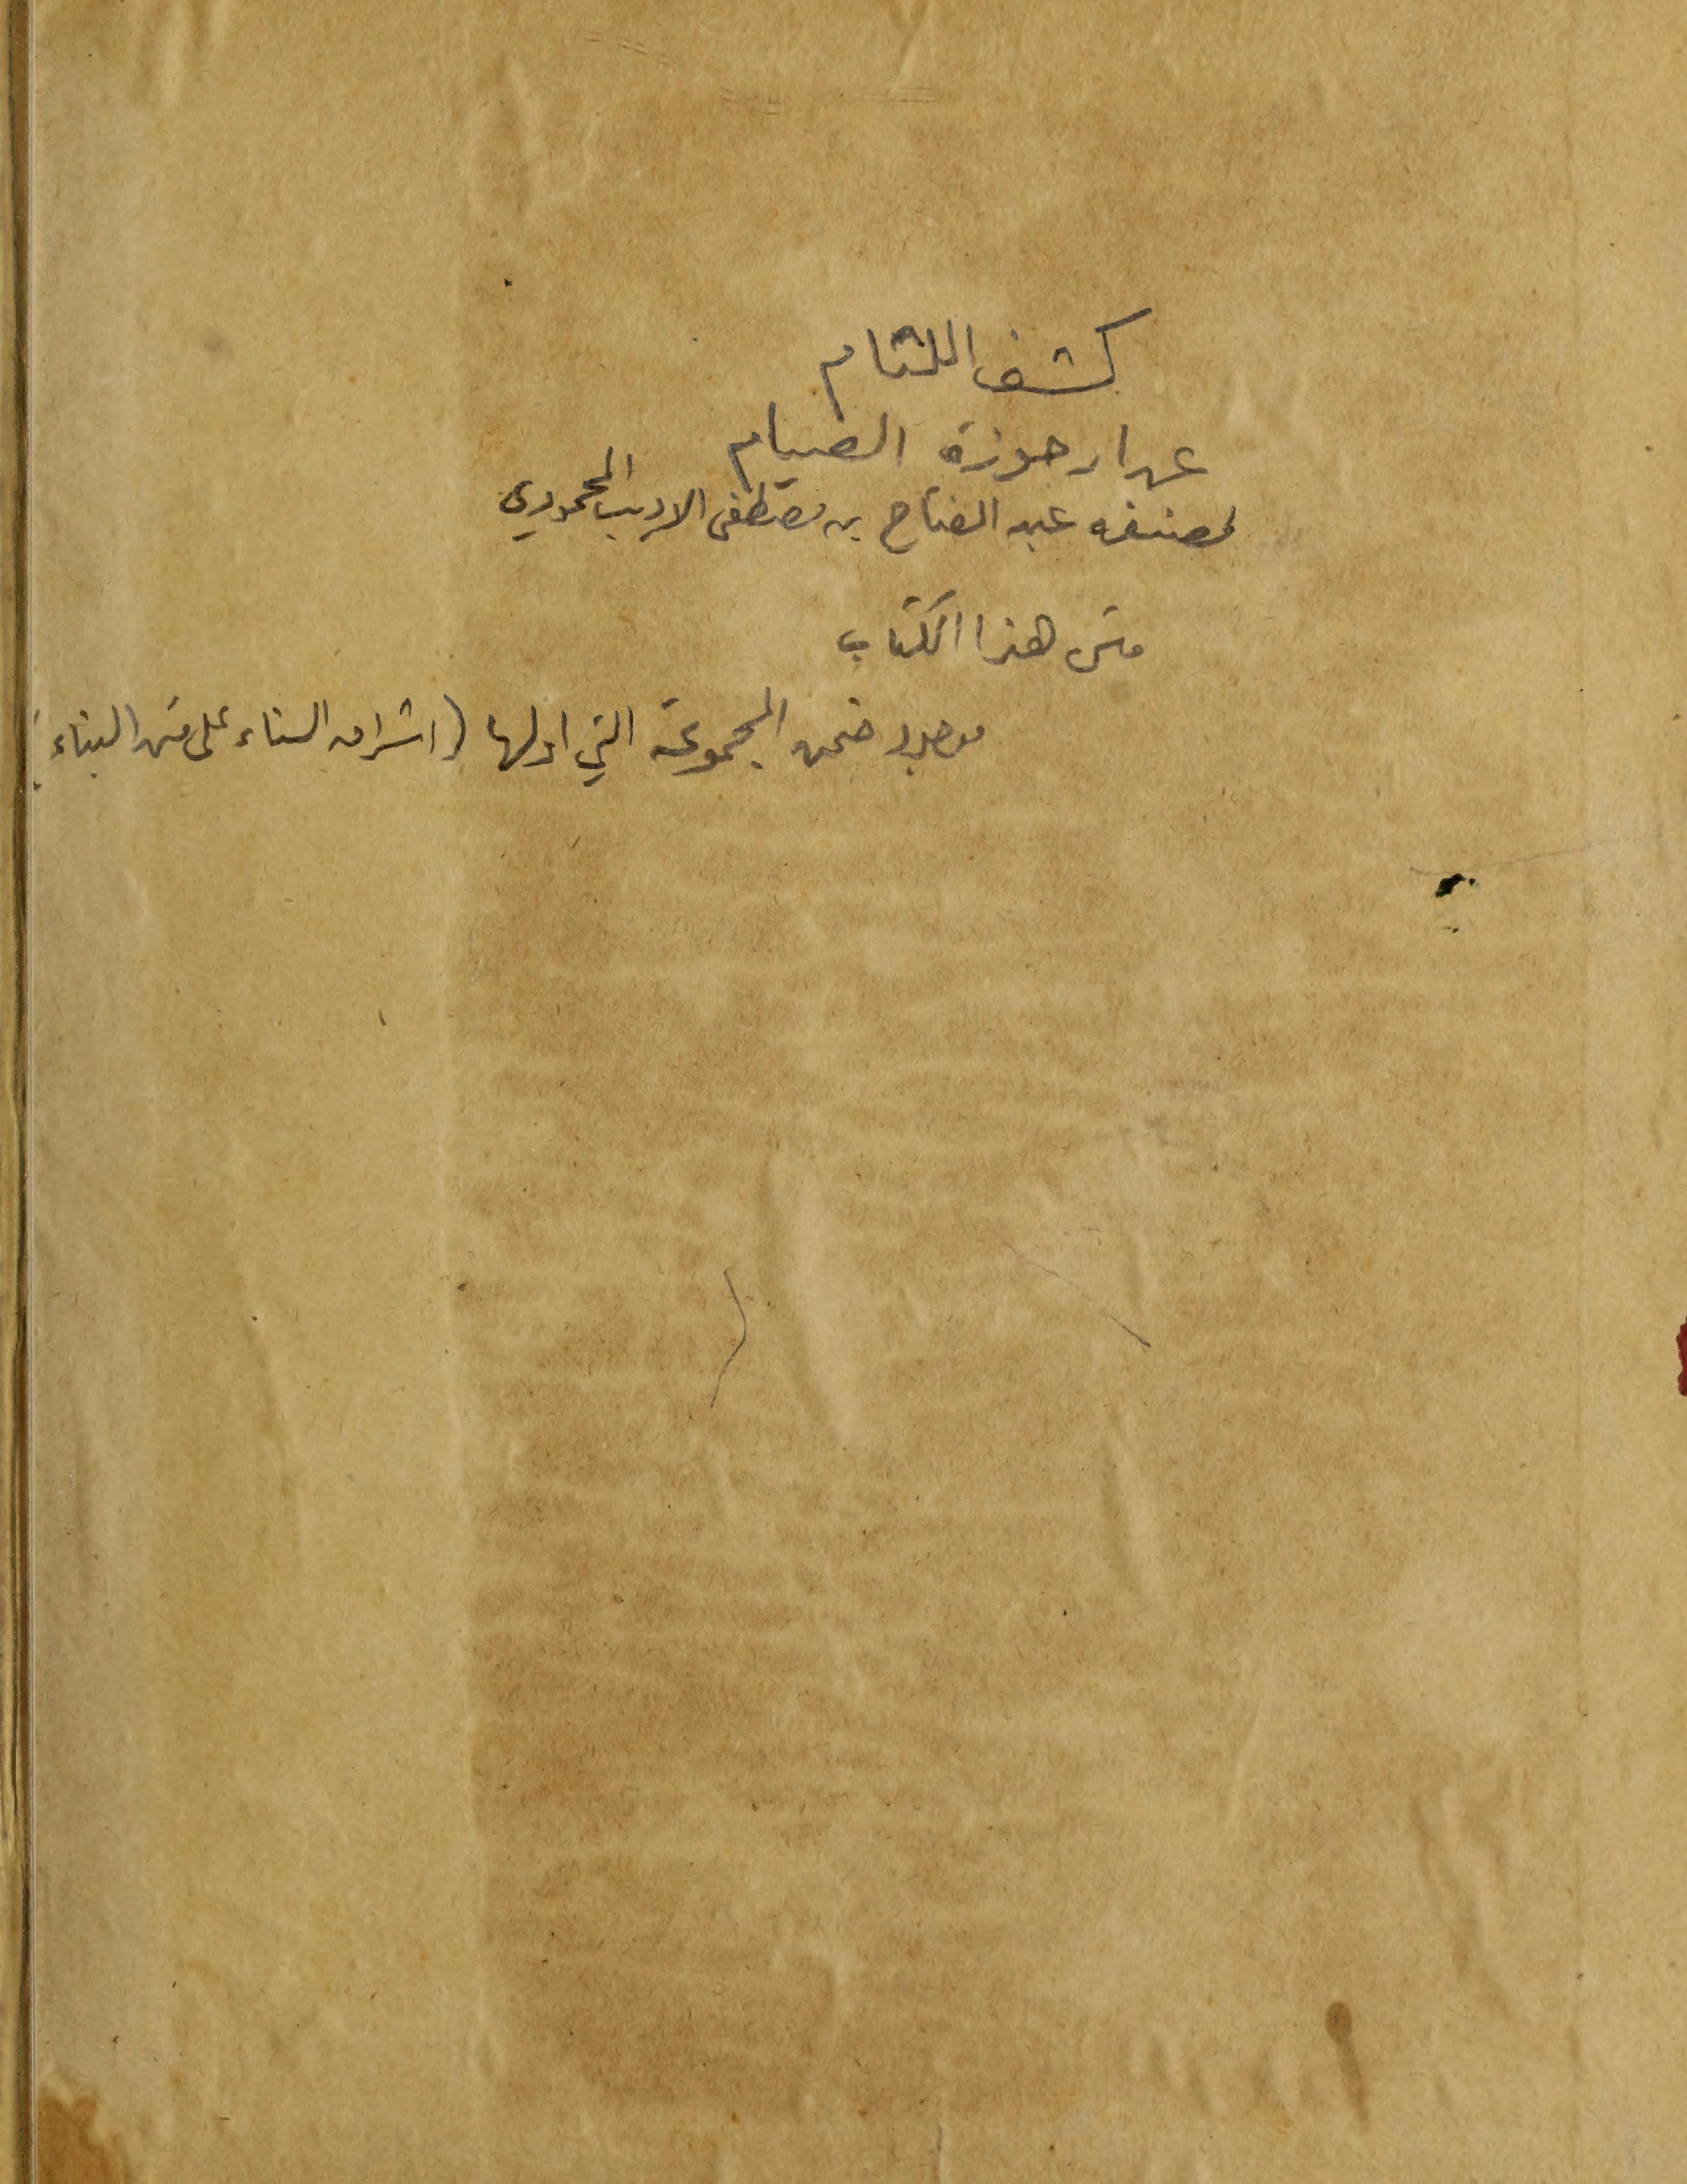 كشف اللثام
عن ارجوزة الصيام
لمصنفه عبد الفتاح بن مصطفى الاديب المحمودي
متن هذا الكتاب
موجود ضمن المجموعة التي اولها (اشراق السناء على متن البناء)